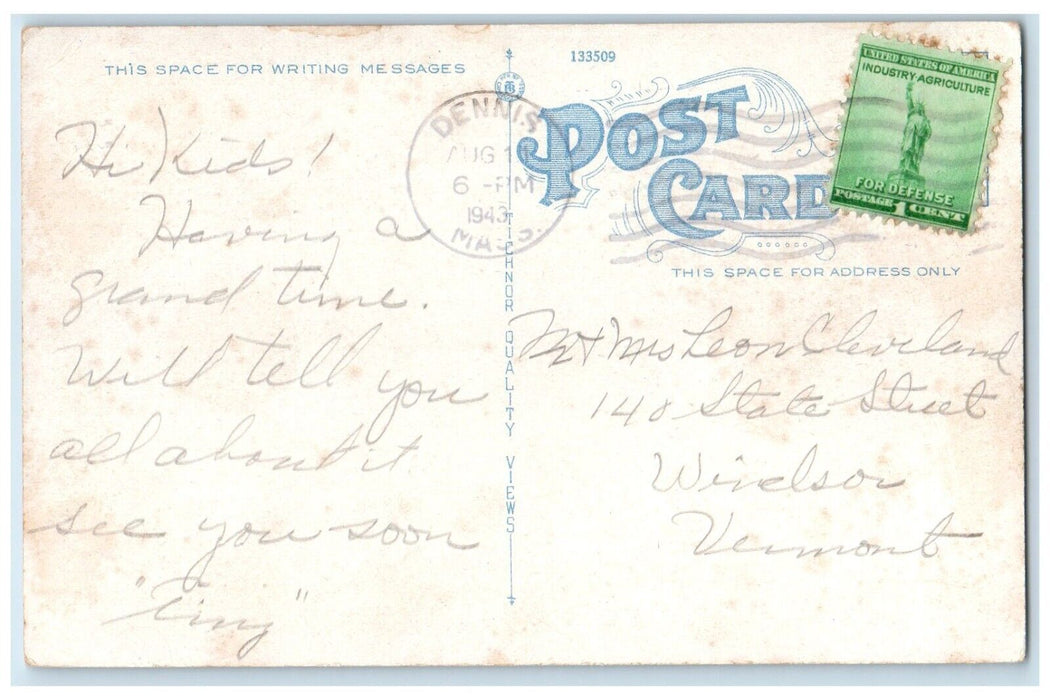 THIS SPACE FOR WRITING MESSAGES
Hi Kids!
Having a
grand time.
Will tell you
all about it
see you soon
"Tiny"
133509
POST
CARD
DENNIS
AUG 1
6 - PM
1943
MASS.
UNITED STATES OF AMERICA
INDUSTRY AGRICULTURE
FOR DEFENSE
POSTAGE 1 CENT
TICHNOR QUALITY VIEWS
THIS SPACE FOR ADDRESS ONLY
Mr + Mrs Leon Cleveland
140 State Street
Windsor
Vermont